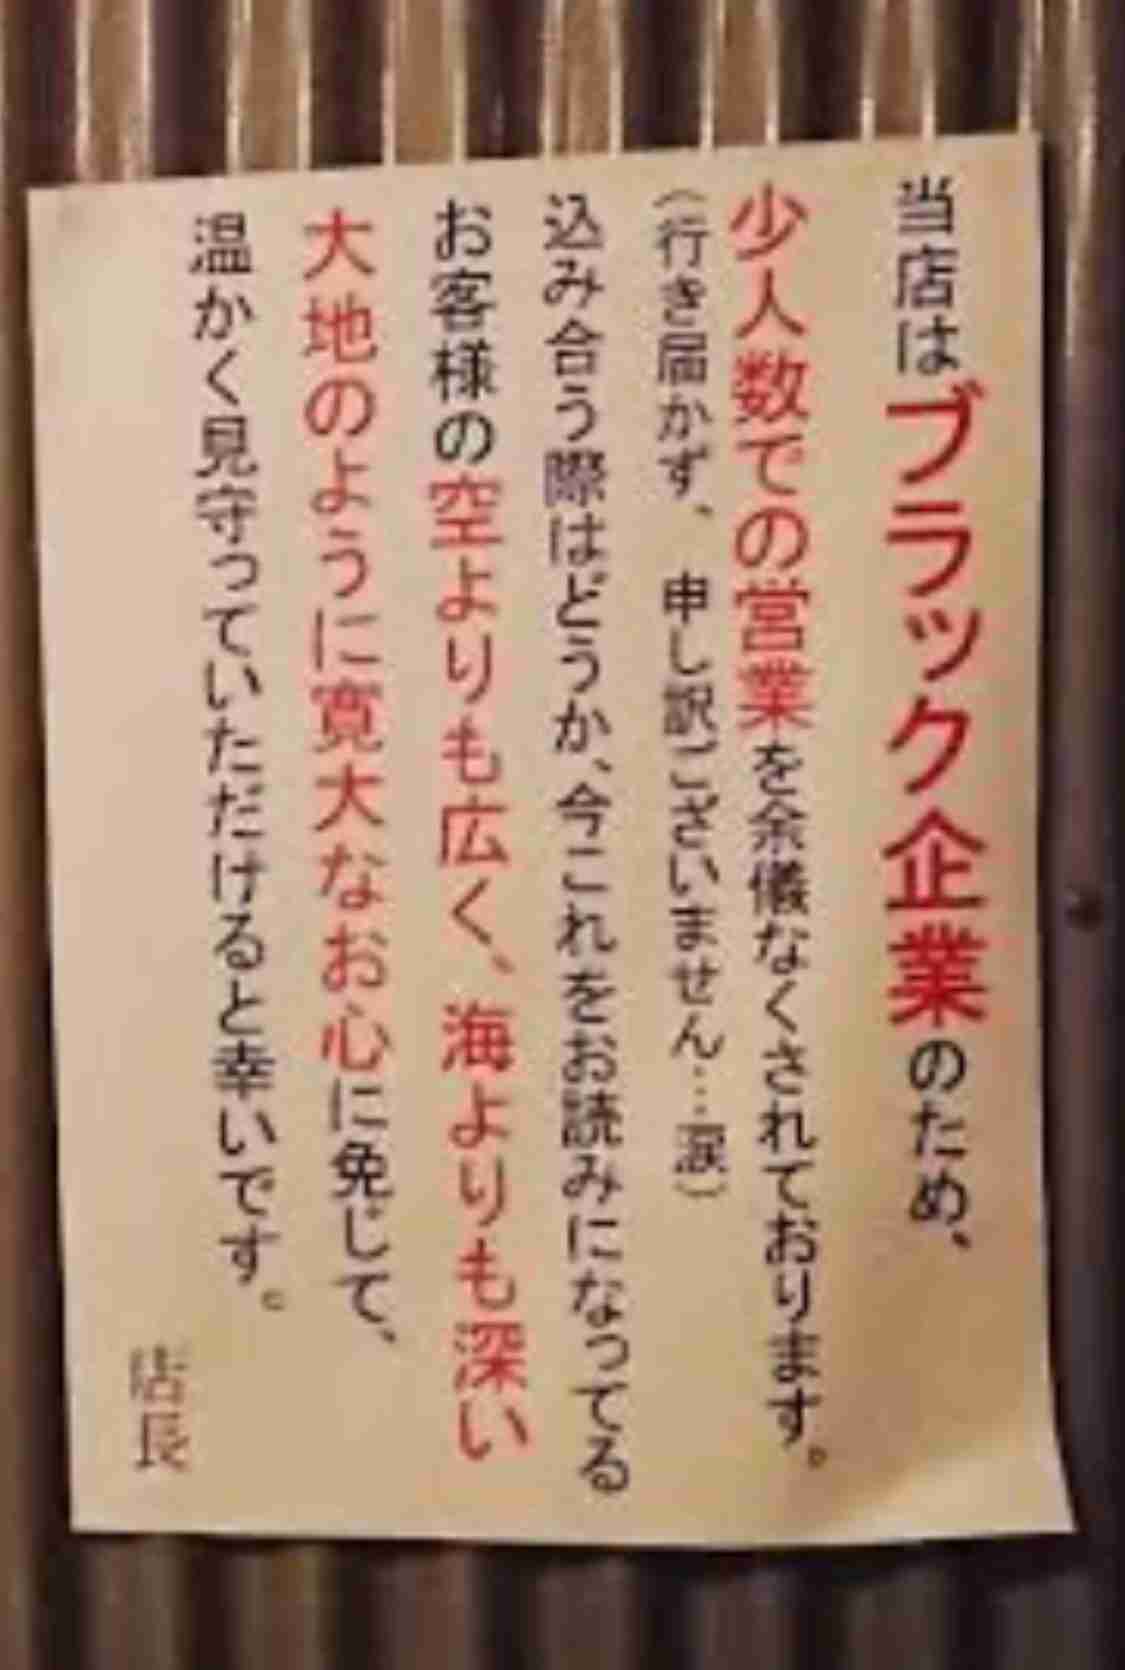 当店はブラック企業のため、
少人数での営業を余儀なくされております。
（行き届かず、申し訳ございません…涙）
込み合う際はどうか、今これをお読みになってる
お客様の空よりも広く、海よりも深い
大地のように寛大なお心に免じて、
温かく見守っていただけると幸いです。
店長